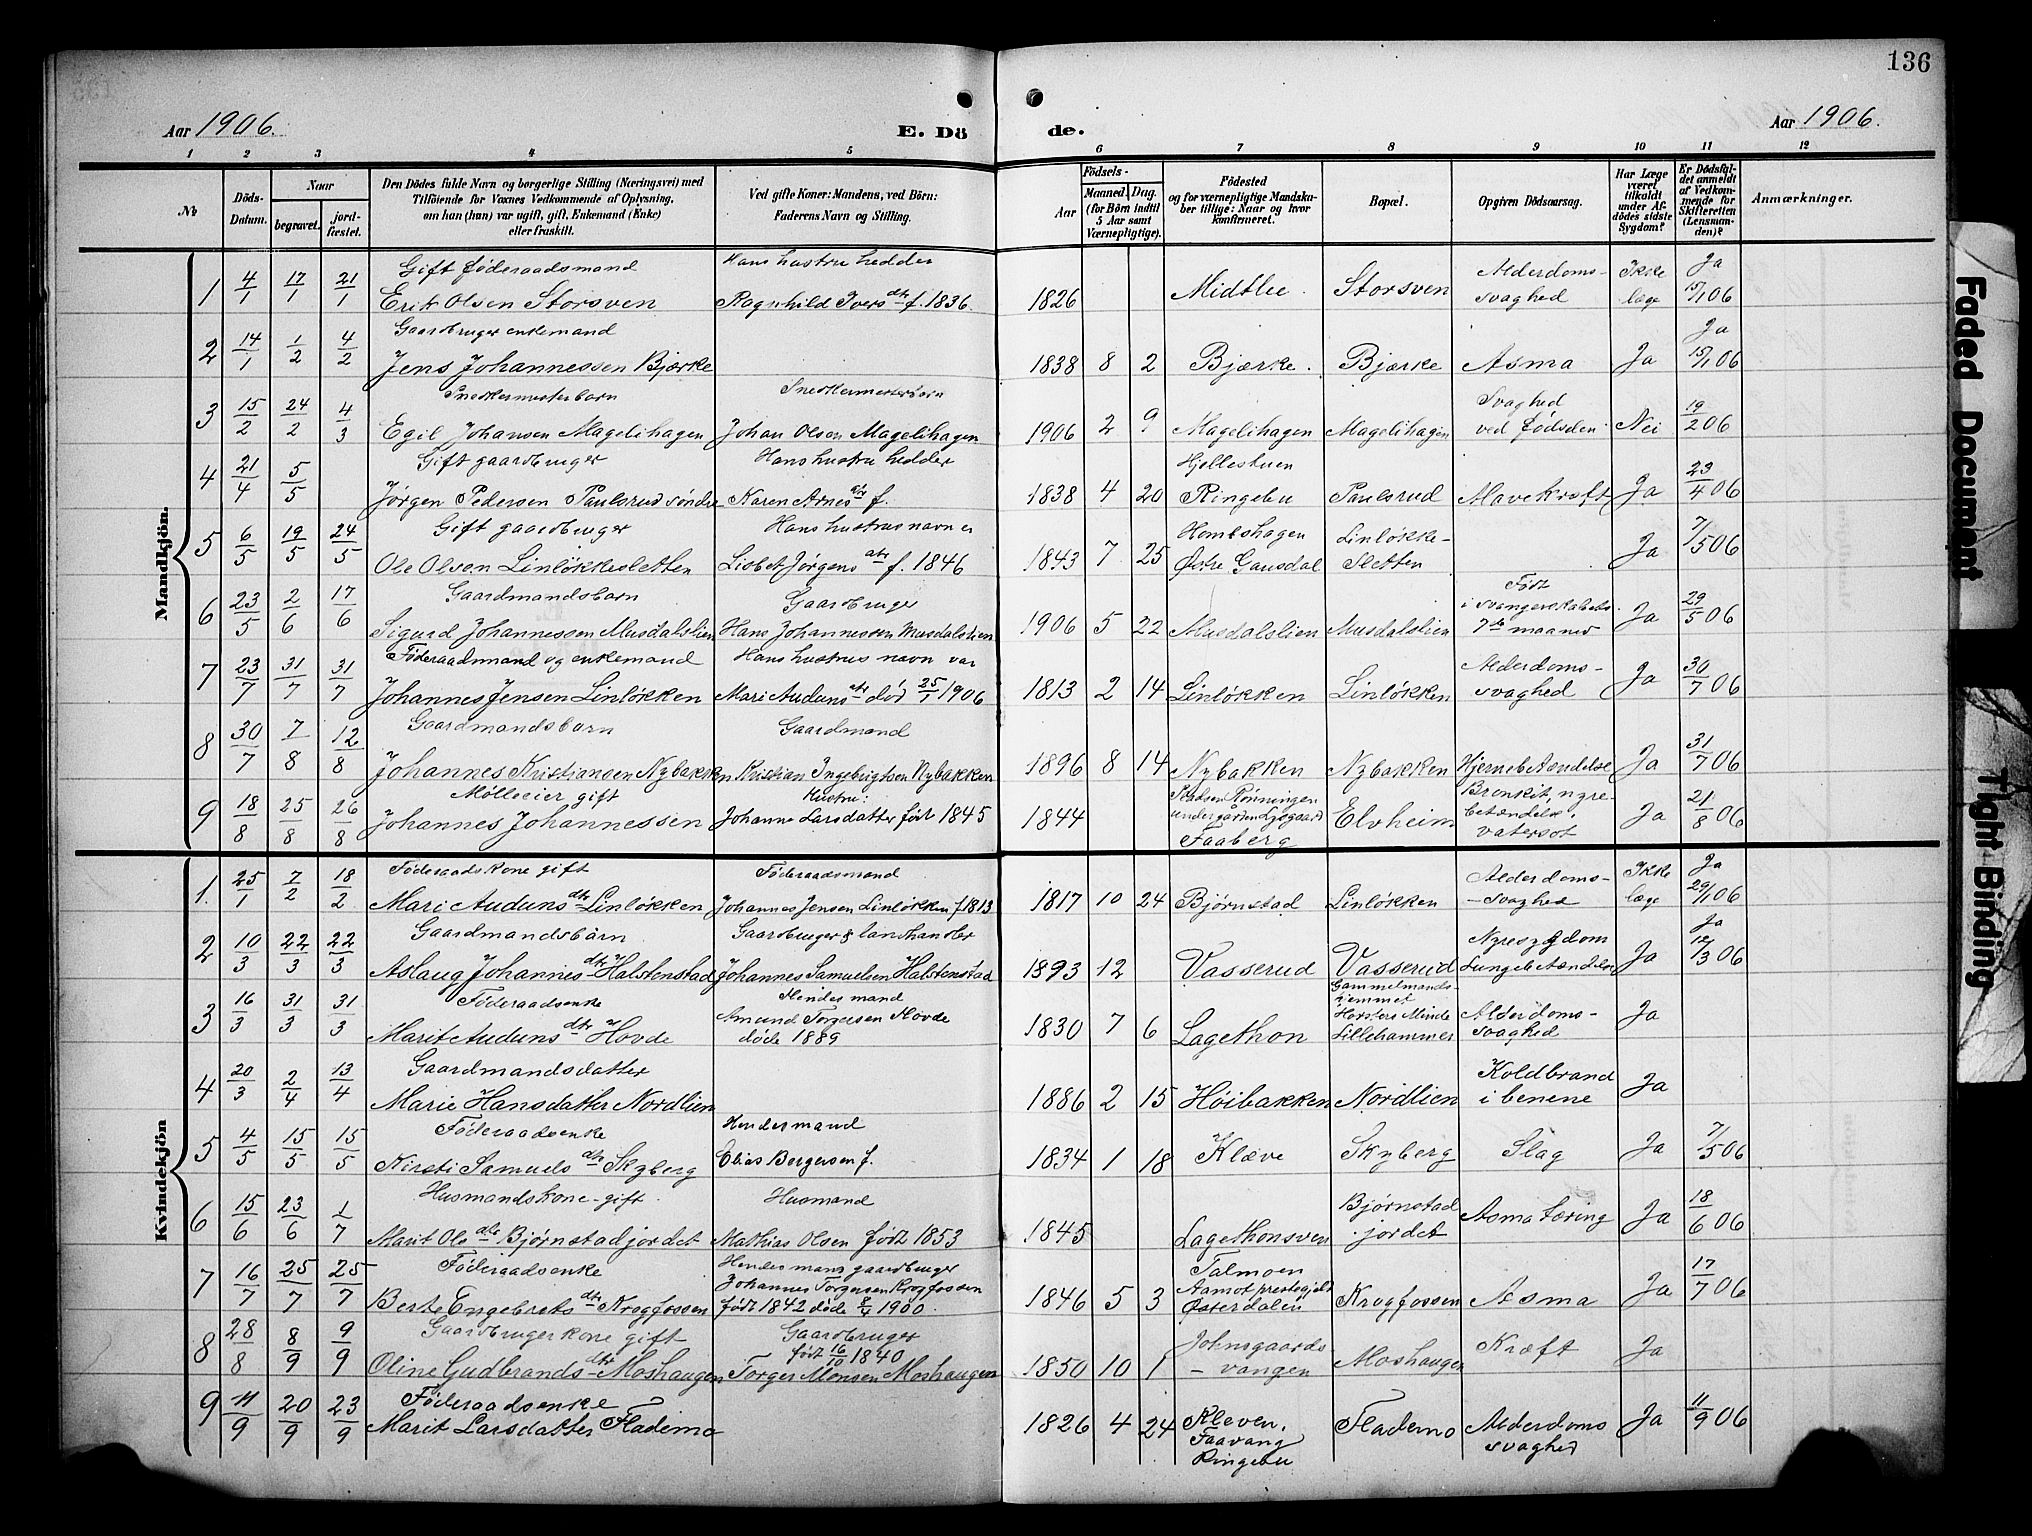 136
Aar 1906.
E. Dö
de.
Aar 1906.
1 2 3 4 5 6 7 8 9 10 11 12
№
Döds-
Datum.
Naar
begravet.
jord-
fæstet.
Den Dödes fulde Navn og borgerlige Stilling (Næringsvei) med
Tilföiende for Voxnes Vedkommende af Oplysning,
om han (hun) var ugift, gift, Enkemand (Enke)
eller fraskilt.
Ved gifte Koner: Mandens, ved Börn:
Faderens Navn og Stilling.
Födsels-
Aar
Maaned Dag.
(for Börn indtil
5 Aar samt
Værnepligtige).
Födested
og for værnepligtige Mandska-
ber tillige: Naar og hvor
konfirmeret.
Bopæl.
Opgiven Dödsaarsag.
Har Læge
været
tilkaldt
under Af-
dödes sidste
Sygdom?
Er Dödsfal-
det anmeldt
af Vedkom-
mende for
Skifteretten
(Lensman-
den)?
Anmærkninger.
Mandkjön.
Gift føderaadsmand Hans hustru hedder Alderdoms- Ikke Ja
1 4/1 17/1 21/1 Erik Olsen Storsven Ragnhild Ivers dtr f. 1836. 1826 Midtlie. Storsven svaghed læge 15/1 06
Gaardbruger enkemand Ja
2 14/1 1/2 4/2 Jens Johannessen Bjørke 1838 8 2 Bjærke. Bjærke Asma Ja 15/1 06
Snedkermesterbarn Snedkermesterbørn Svaghed
3 15/2 24/2 4/3 Egil Johansen Magelihagen Johan Olsen Magelihagen 1906 2 9 Magelihagen Magelihagen ved fødslen. Nei 19/2 06
Gift gaardbruger Hans hustru hedder Hjellestuen
4 21/4 5/5 Jørgen Pedersen Paulsrud søndre Karen Arnes dtr f. 1838 4 20 Ringebu Paulsrud Mavekræft Ja 23/4 06
Gift gaardbruger Hans hustrus navn er Linløkke-
5 6/5 19/5 24/5 Ole Olsen Linløkkesletten Lisbet Jørgens dtr f. 1846 1843 7 25 Østre Gausdal Sletten Ja 7/5 06
Gaardmandsbarn Gaardbruger Født
i svangerskabets
6 23/5 2/6 17/6 Sigurd Johannessen Musdalslien Hans Johannessen Musdalslien 1906 5 22 Musdalslien Musdalslien 7de maaned Ja 29/5 06
Føderaadmand og enkemand Hans hustrus navn var Alderdoms-
7 23/7 31/7 31/7 Johannes Jensen Linløkken Mari Auduns dtr død 25/1 1906 1813 2 14 Linløkken Linløkken svaghed Ja 30/7 06
Gaardmandsbarn Gaardmand
8 30/7 7/8 12/8 Johannes Kristiansen Nybakken Kristian Ingebrigtsen Nybakken 1896 8 14 Nybakken Nybakken Hjernebetændelse Ja 31/7 06
Mølleeier gift Hustru: Pladsen Rønningen Bronkit, nyre-
9 18/8 25/8 26/8 Johannes Johannessen Johanne Larsdatter født 1845 1844 under gården Lysgaard Elvheim betændelse, Ja 21/8 06
Faaberg vatersot
Kvindekjön
Føderaadskone gift Føderaadsmand Alderdoms- Ikke Ja
1. 25/1 7/2 18/2 Mari Auduns dtr Linløkken Johannes Jensen Linløkken f. 1813 1817 10 24 Bjørnstad Linløkken -svaghed læge 29/1 06
Gaardmandsbarn Gaardbruger & landhandler Nyresygdom Ja
2 10/3 22/3 22/3 Aslaug Johannis dtr Halstenstad Johannes Samuelsen Halstenstad 1893 12 Vasserud Vasserud Lungebetændelse Ja 12/3 06
Føderaadsenke Hendes mand Gammelmands-
hjemmet
3 16/3 31/3 31/3 Amund Torgersen Hovde Alderdoms- Ja
Marit Auduns dtr Hovde døde 1889 1830 7 6 Lagethon Lillehammer svaghed
Gaardmandsdatter Koldbrand
4 20/3 2/4 13/4 Marie Hansdatter Nordlien 1886 2 15 Høibakken Nordlien i benene Ja
Føderaadsenke Hendes mand
5 4/5 15/5 15/5 Kirsti Samuels dtr Skyberg Elias Bergersen f. 1834 1 18 Klæve Skyberg Slag Ja 7/5 06
Husmandskone - gift. Husmand Bjørnstad
6 15/6 23/6 1/7 Marit Ols dtr Bjørnstadjordet Mathias Olsen født 1853 1845 Lagethonsven jordet Asma tæring Ja 18/6 06
Føderaadsenke Hendes man gaardbruger Talmoen
Johannes Torgersen Krogfossen Aamot prestegjeld
7 16/7 25/7 25/7 Berte Engebrets dtr Krogfossen født 1842 døde 1900. 1846 5 3 Østerdalen Krogfossen Asma Ja 17/7 06
Gaardbrugerkone gift Gaardbruger Johnsgaards Kræft
født 16/10 1840
8 28/8 8/9 9/9 Oline Gudbrands dtr Moshaugen Torger Monsen Moshaugen 1850 10 1 - vangen Moshaugen Ja
Føderaadsenke
9 11/9 20/9 23/9 Marit Larsdatter Flademo 1826 4 24 Kleven, Flademo Alderdoms Ja 11/9 06
Faavang svaghed
Ringebu
Faded Document
Tight Binding